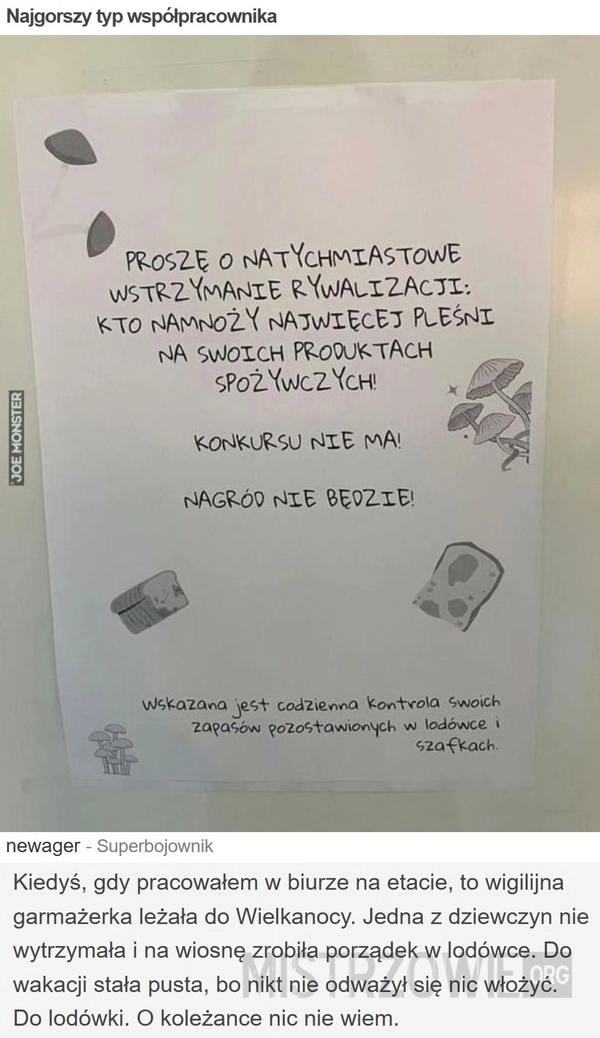 Najgorszy typ współpracownika
PROSZĘ O NATYCHMIASTOWE
WSTRZYMANIE RYWALIZACJI:
KTO NAMNOŻY NAJWIĘCEJ PLEŚNI
NA SWOICH PRODUKTACH
SPOŻYWCZYCH!
KONKURSU NIE MA!
NAGRÓD NIE BĘDZIE!
Wskazana jest codzienna kontrola swoich
zapasów pozostawionych w lodówce i
szafkach.
JOE MONSTER
newager - Superbojownik
Kiedyś, gdy pracowałem w biurze na etacie, to wigilijna
garmażerka leżała do Wielkanocy. Jedna z dziewczyn nie
wytrzymała i na wiosnę zrobiła porządek w lodówce. Do
wakacji stała pusta, bo nikt nie odważył się nic włożyć.
Do lodówki. O koleżance nic nie wiem.
MISTRZOWIE.ORG